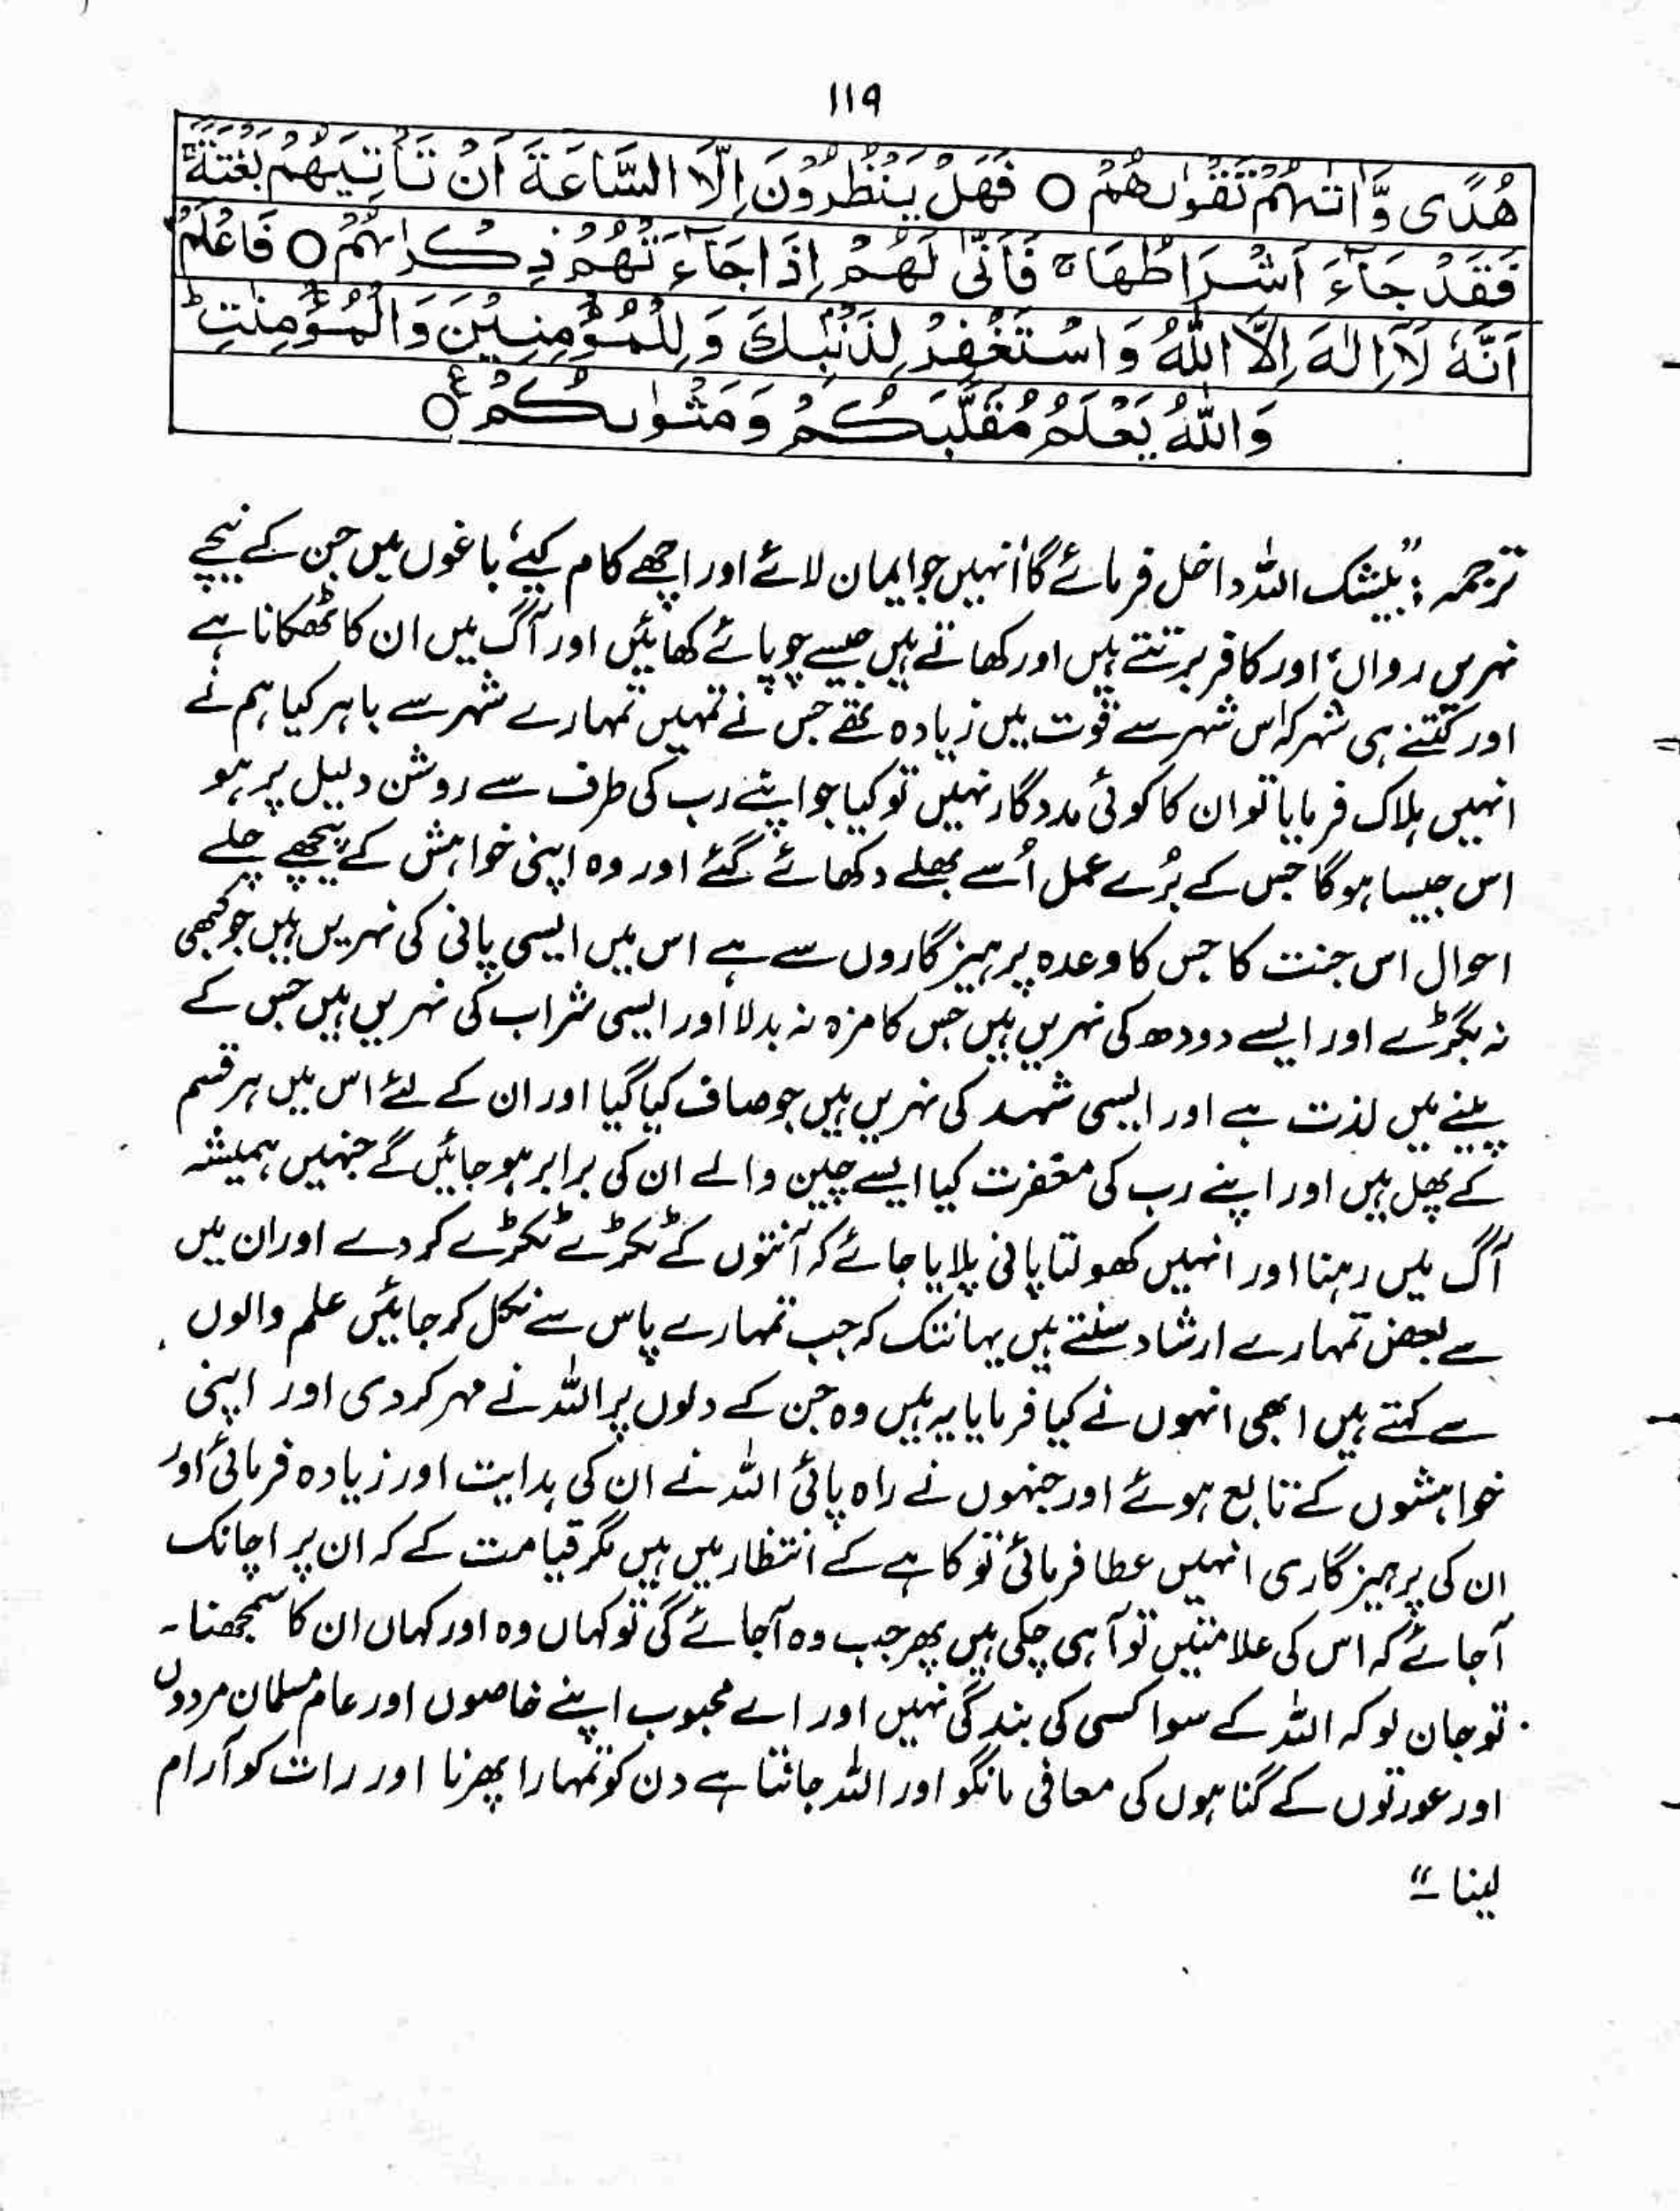 ۱۱۹
هُدًى وَّاٰتٰىهُمْ تَقْوٰىهُمْ ○ فَهَلْ يَنْظُرُوْنَ اِلَّا السَّاعَةَ اَنْ تَاْتِيَهُمْ بَغْتَةً ۚ
فَقَدْ جَآءَ اَشْرَاطُهَا ۚ فَاَنّٰى لَهُمْ اِذَا جَآءَتْهُمْ ذِكْرٰىهُمْ ○ فَاعْلَمْ
اَنَّهٗ لَآ اِلٰهَ اِلَّا اللّٰهُ وَاسْتَغْفِرْ لِذَنْۢبِكَ وَلِلْمُؤْمِنِيْنَ وَالْمُؤْمِنٰتِ ؕ
وَاللّٰهُ يَعْلَمُ مُتَقَلَّبَكُمْ وَمَثْوٰىكُمْ ○ ع
ترجمہ : ”بیشک اللہ داخل فرمائے گا اُنہیں جو ایمان لائے اور اچھے کام کیے، باغوں میں جن کے نیچے
نہریں رواں، اور کافر برتتے ہیں اور کھاتے ہیں جیسے چوپائے کھائیں اور آگ میں ان کا ٹھکانا ہے
اور کتنے ہی شہر کہ اس شہر سے قوت میں زیادہ تھے جس نے تمہیں تمہارے شہر سے باہر کیا ہم نے
انہیں ہلاک فرمایا تو ان کا کوئی مددگار نہیں تو کیا جو اپنے رب کی طرف سے روشن دلیل پر ہو
اس جیسا ہوگا جس کے بُرے عمل اُسے بھلے دکھائے گئے اور وہ اپنی خواہش کے پیچھے چلے
احوال اس جنت کا جس کا وعدہ پرہیزگاروں سے ہے اس میں ایسی پانی کی نہریں ہیں جو کبھی
نہ بگڑے اور ایسے دودھ کی نہریں ہیں جس کا مزہ نہ بدلا اور ایسی شراب کی نہریں ہیں جس کے
پینے میں لذت ہے اور ایسی شہد کی نہریں ہیں جو صاف کیا گیا اور ان کے لئے اس میں ہر قسم
کے پھل ہیں اور اپنے رب کی مغفرت کیا ایسے چین والے ان کی برابر ہو جائیں گے جنہیں ہمیشہ
آگ میں رہنا اور انہیں کھولتا پانی پلایا جائے کہ آنتوں کے ٹکڑے ٹکڑے کر دے اور ان میں
سے بعض تمہارے ارشاد سنتے ہیں یہانتک کہ جب تمہارے پاس سے نکل کر جائیں علم والوں
سے کہتے ہیں ابھی انہوں نے کیا فرمایا یہ ہیں وہ جن کے دلوں پر اللہ نے مہر کر دی اور اپنی
خواہشوں کے تابع ہوئے اور جنہوں نے راہ پائی اللہ نے ان کی ہدایت اور زیادہ فرمائی اور
ان کی پرہیزگاری انہیں عطا فرمائی تو کاہے کے انتظار میں ہیں مگر قیامت کے کہ ان پر اچانک
آجائے کہ اس کی علامتیں تو آہی چکی ہیں پھر جب وہ آجائے گی تو کہاں وہ اور کہاں ان کا سمجھنا۔
تو جان لو کہ اللہ کے سوا کسی کی بندگی نہیں اور اے محبوب اپنے خاصوں اور عام مسلمان مردوں
اور عورتوں کے گناہوں کی معافی مانگو اور اللہ جانتا ہے دن کو تمہارا پھرنا اور رات کو آرام
لینا ۔“